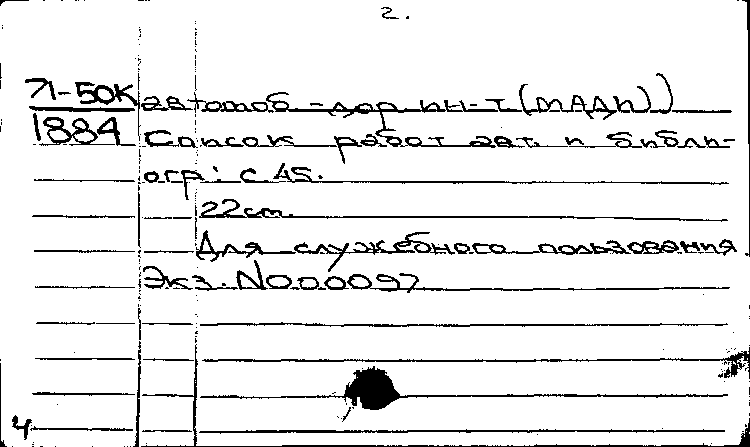 2.
71-50К автомоб.-дор. ин-т (МАДИ))
1884 Список работ авт. и библи-
огр: с 45.
22cm.
Для служебного пользования.
Экз. N000097
4